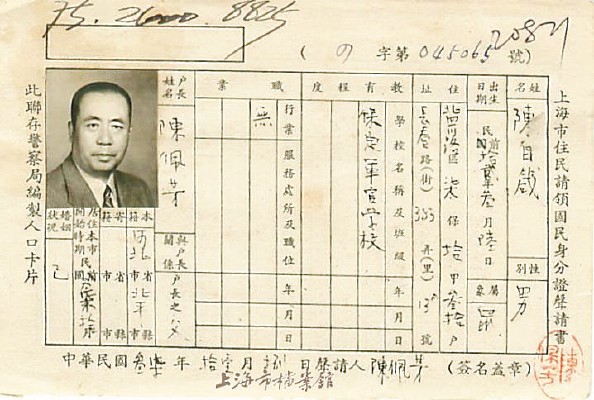 75. 2600. 8825
2082
(の字第 045065 號)
上海市住民請領國民身分證聲請書
姓名 陳自箴
性別 男
出生日期 民國前 月陸日
屬象 鼠
住址 區 柒保拾甲叁拾戶
長春路(街)353弄(里)13號
教育程度
學校名稱及班級 年月日
保定軍官學校
職業
行業 服務處所及職位 年月日
無
戶長姓名 陳佩芳
與戶長關係 戶長之父
本籍 河北省市北平縣市
寄籍 省市縣市
居住本市開始時期 民國前 年
婚姻狀況 已
中華民國叁 年拾壹月 日聲請人陳佩芳(簽名蓋章)
上海市檔案館
此聯存警察局編製人口卡片